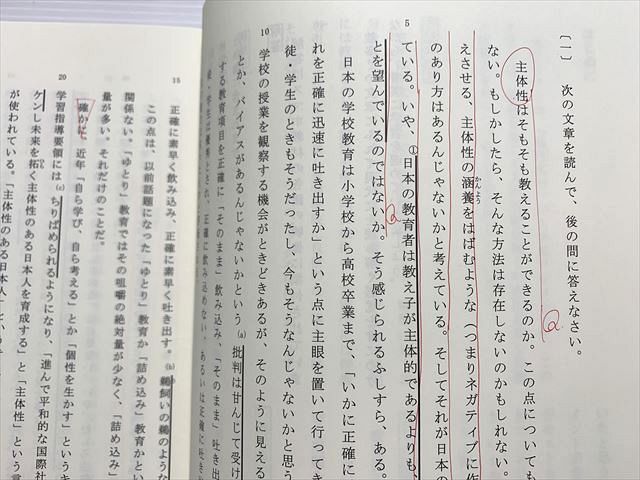 〔一〕 次の文章を読んで、後の問に答えなさい。
主体性はそもそも教えることができるのか。この点についても
ない。もしかしたら、そんな方法は存在しないのかもしれない。
えさせる、主体性の涵養をはばむような（つまりネガティブに作
かんよう
のあり方はあるんじゃないかと考えている。そしてそれが日本の
5
ている。いや、①日本の教育者は教え子が主体的であるよりも、
とを望んでいるのではないか。そう感じられるふしすら、ある。
日本の学校教育は小学校から高校卒業まで、「いかに正確に
れを正確に迅速に吐き出すか」という点に主眼を置いて行ってき
徒・学生のときもそうだったし、今もそうなんじゃないかと思う
10
学校の授業を観察する機会がときどきあるが、そのように見える
とか、バイアスがあるんじゃないかという(a)批判は甘んじて受け
する教育項目を正確に「そのまま」飲み込み、「そのまま」吐き出
15
正確に素早く飲み込み、正確に素早く吐き出す。(b)鵜飼いの鵜のような
この点は、以前話題になった「ゆとり」教育か「詰め込み」教育かとい
関係ない。「ゆとり」教育ではその咀嚼の絶対量が少なく、「詰め込み」
量が多い。それだけのことだ。
確かに、近年「自ら学び、自ら考える」とか「個性を生かす」というキ
20
学習指導要領には(c)ちりばめられるようになり、「進んで平和的な国際社
ケンし未来を拓く主体性のある日本人を育成する」と「主体性」という言
が使われている。「主体性のある日本人」